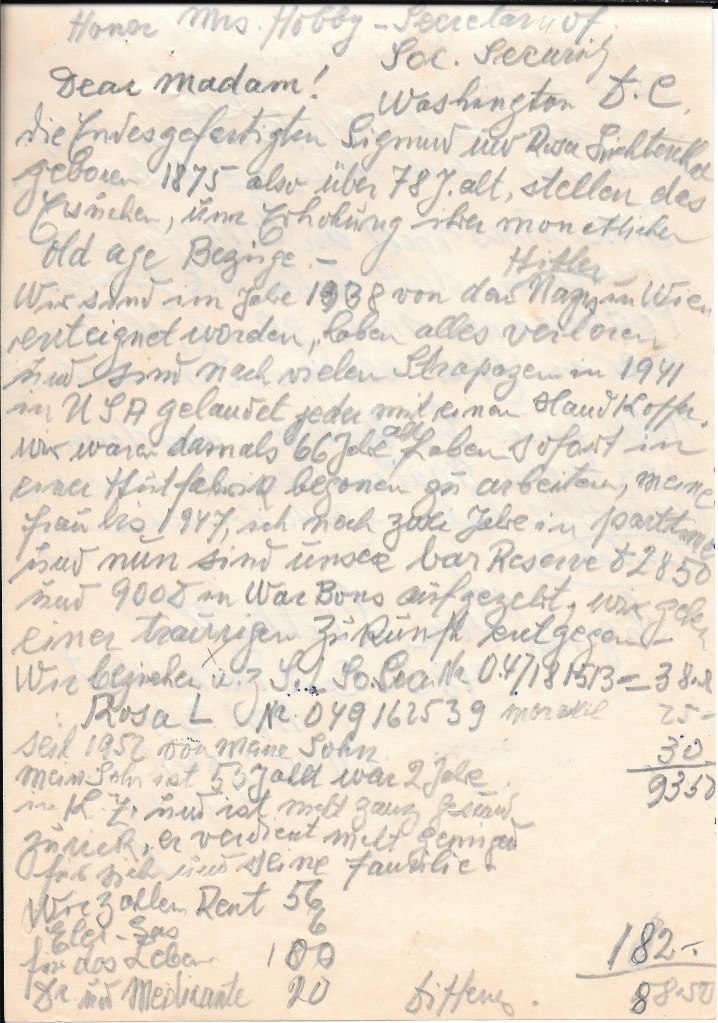 Honor Mrs. Hobby – Secretary of
Soc. Security
Dear Madam!
Washington D.C.
die Endesgefertigten Sigmund und Rosa
geboren 1875 also über 78 J. alt, stellen das
Ersuchen, um Erhöhung ihrer monetlichen
old age Bezüge. –
Hitler
Wir sind im Jahre 1938 von den Nazis in Wien
enteignet worden, haben alles verloren
und sind nach vielen Strapazen in 1941
in USA gelandet jeder mit einen Handkoffer.
wir waren damals 66 Jahre alt haben sofort in
einer Hutfabrik begonen zu arbeiten, meine
Frau bis 1947, ich noch zwei Jahre in parttime
und nun sind unsere bar Reserve $ 2850
und 900$ in War Bons aufgezehrt, wir gehen
einer traurigen Zukunft entgegen –
Wir beziehen u. z S.L So.Sec. Nr 047181513 = 38.50
Rosa L Nr. 049162539 25 –
seit 1952 von meine Sohn 30
mein Sohn ist 50 J alt war 2 Jahre 9350
in K.Z. und ist nicht ganz gesund
zurück, er verdient nicht genügend
für sich und seine Familie.
Wir zahlen Rent 56
Elec – Gas 6
für das Leben 100 182 –
Dr. und Medicante 20 Differenz. 88.50